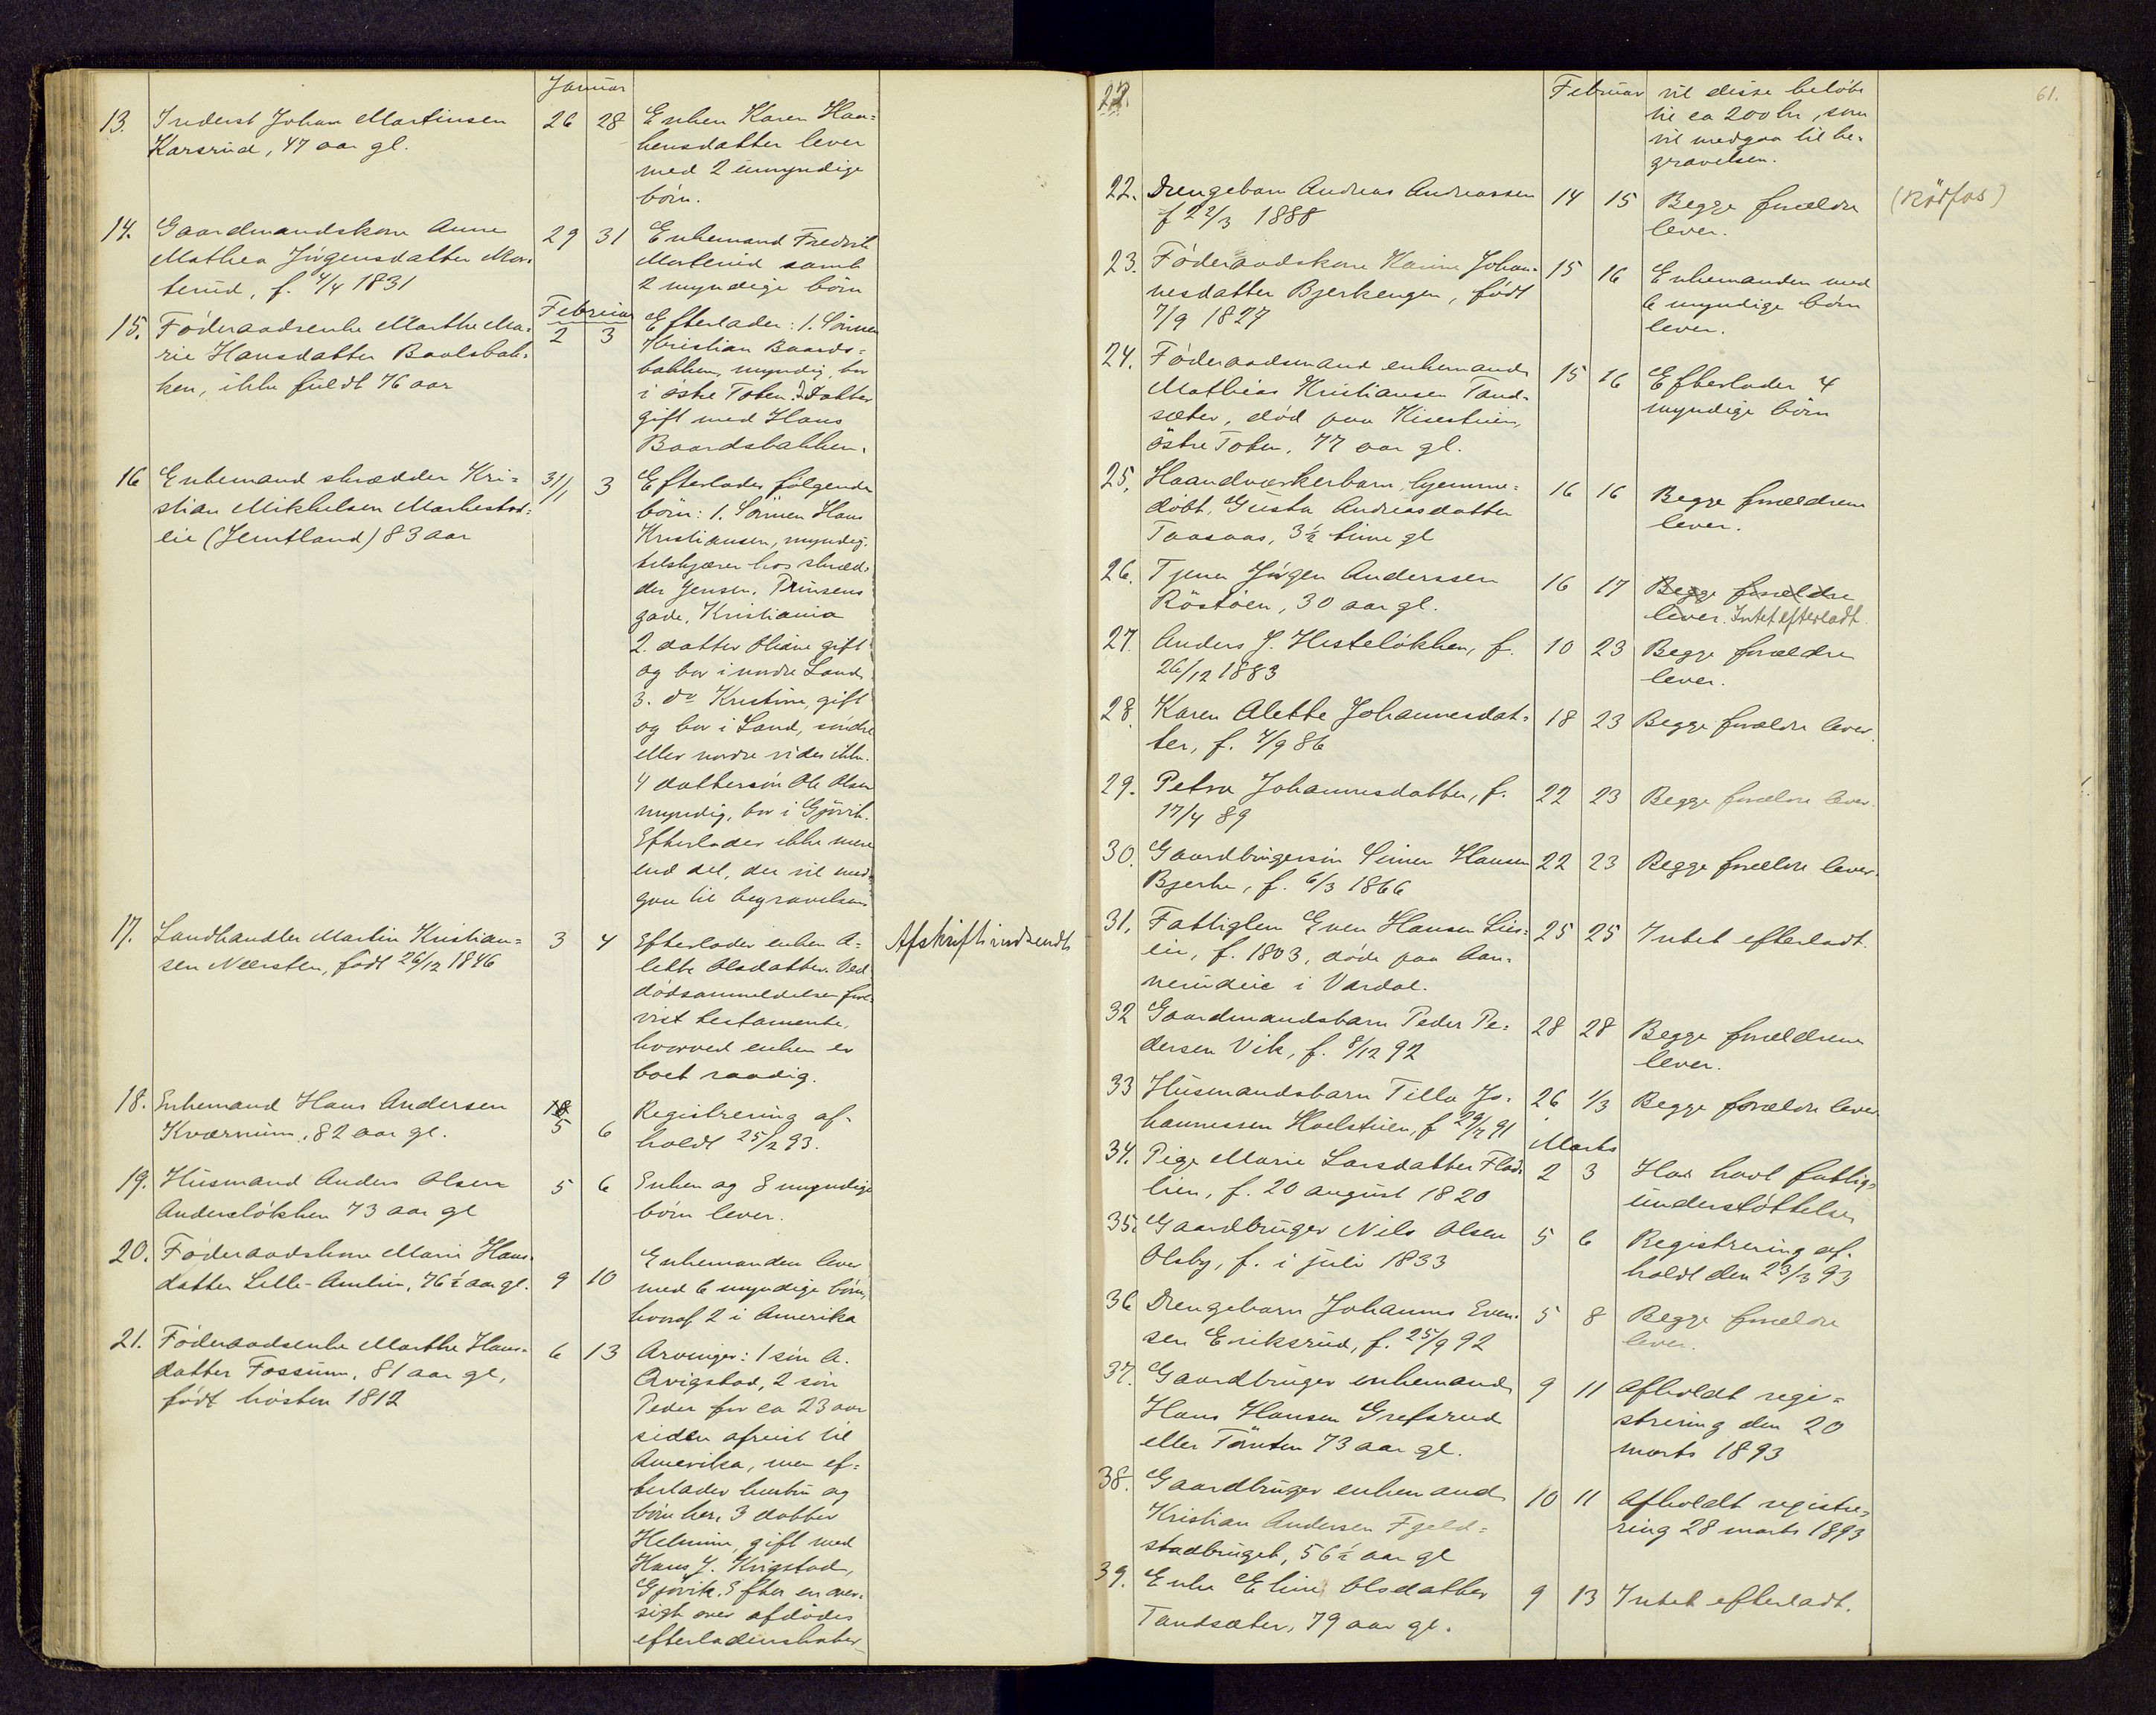 Januar
13. Inderst Johan Martinsen 26 28 Enken Karen Haa=
Karsrud, 47 aar gl. kensdatter lever
med 2 umyndige
börn.
14. Gaardmandskone Anne 29 31 Enkemand Fredrik
Mathea Jörgensdatter Mor= Morterud samt
terud, f. 4/4 1831 2 myndige börn
Februar
15. Föderaadsenke Marthe Ma= 2 3 Efterlader: 1. Sönnen
rie Hansdatter Baalsbak= Kristian Baards=
ken, ikke fuldt 76 aar bakken, myndig, bor
i östre Toten. 2 Datter
gift med Hans
Baardsbakken.
16 Enkemand skrædder Kri= 31/1 3 Efterlader følgende
stian Mikkelsen Markestad= börn: 1. Sönnen Hans
eie (Jemtland) 83 aar Kristiansen, myndig,
tilskjærer hos skræd=
der Jensen, Prinsens
gade, Kristiania
2. datter Oliane gift
og bor i nordre Land
3. do Kristine, gift
og bor i Land, söndre
eller nordre vides ikke.
4 dattersön Ole Olsen
myndig, bor i Gjövik.
Efterlader ikke mere
end det, der vil med=
gaa til begravelsen
17. Landhandler Martin Kristian= 3 4 Efterlader enken A= Afskrift indsendt
sen Næresten, født 26/12 1846 lette Olsdatter. Ved
dödsanmeldelsen fore=
vist testamente,
hvorved enken er
boet raadig.
18. Enkemand Hans Andersen 18 5 6 Registrering af=
Kværnum, 82 aar gl. holdt 25/2 93.
19. Husmand Anders Olsen 5 6 Enken og 8 myndige
Anderslökken 73 aar gl börn lever.
20. Föderaadskone Marie Hans= Enkemanden lever
datter Lille-Amlien, 76 ½ aar gl. 9 10 med 6 myndige börn,
hvoraf 2 i Amerika
21. Föderaadsenke Marthe Hans= 6 13 Arvinger: 1 sön A.
datter Fossum, 81 aar gl, Qvigstad, 2 sön
født hösten 1812 Peder for ca 23 aar
siden afreist til
Amerika, men ef=
terlader hustru og
börn her, 3 datter
Helmine, gift med
Hans J. Kvigstad,
Gjövik. Efter en over=
sigt over afdödes
efterladenskaber
61.
22. Februar vil disse belöbe
til ca 200 kr, som
vil medgaa til be=
gravelsen.
22. Drengebarn Andreas Andreassen 14 15 Begge forældre (Rödfos)
f 22/3 1888 lever.
23. Föderaadskone Karine Johan= 15 16 Enkemanden med
nesdatter Bjerkengen, født 6 myndige börn
7/9 1827 lever.
24. Föderaadsmand enkemand 15 16 Efterlader 4
Mathias Kristiansen Tand= myndige börn
sæter, död paa Kisestuen,
östre Toten, 77 aar gl.
25. Haandværkerbarn, hjemme= 16 16 Begge forældrene
döbt, Gusta Andreasdatter lever.
Taasaas, 3½ time gl
26. Tjener Jörgen Anderssen 16 17 Begge forældre
Röstöen, 30 aar gl. lever. Intet efterladt.
27. Anders J. Hestelökken, f. 10 23 Begge forældre
26/12 1883 lever.
28. Karen Alette Johannesdat= 18 23 Begge forældre lever.
ter, f. 4/9 86
29. Petra Johannesdatter, f. 22 23 Begge forældre lever.
17/4 89
30. Gaardbrugersön Simen Hansen 22 23 Begge forældre lever.
Bjerke, f. 6/3 1866
31. Fattiglem Even Hansen Lies= 25 25 Intet efterladt.
eie, f. 1803, döde paa Aan=
nerudeie i Vardal.
32 Gaardmandsbarn Peder Pe= 28 28 Begge forældrene
dersen Vik, f. 8/12 92 lever.
33 Husmandsbarn Tilla Jo= 26 1/3 Begge forældre lever
hannessen Hoelstuen, f 29/7 91
Marts
34. Pige Marie Larsdatter Flad= 2 3 Har havt fattig=
lien, f. 20 august 1820 understöttelse
35. Gaardbruger Nils Olsen 5 6 Registrering af=
Olsby, f. i juli 1833 holdt den 23/3 93
36 Drengebarn Johannes Even= 5 8 Begge forældre
sen Eriksrud, f. 25/9 92 lever.
37. Gaardbruger enkemand 9 11 Afholdt regi=
Hans Hansen Grefsrud strering den 20
eller Tömten 73 aar gl. marts 1893
38. Gaardbruger enkemand 10 11 Afholdt registre=
Kristian Andersen Fjeld= ring 28 marts 1893
stadbruget, 56 ½ aar gl
39. Enke Eline Olsdatter 9 13 Intet efterladt.
Tandsæter, 79 aar gl.